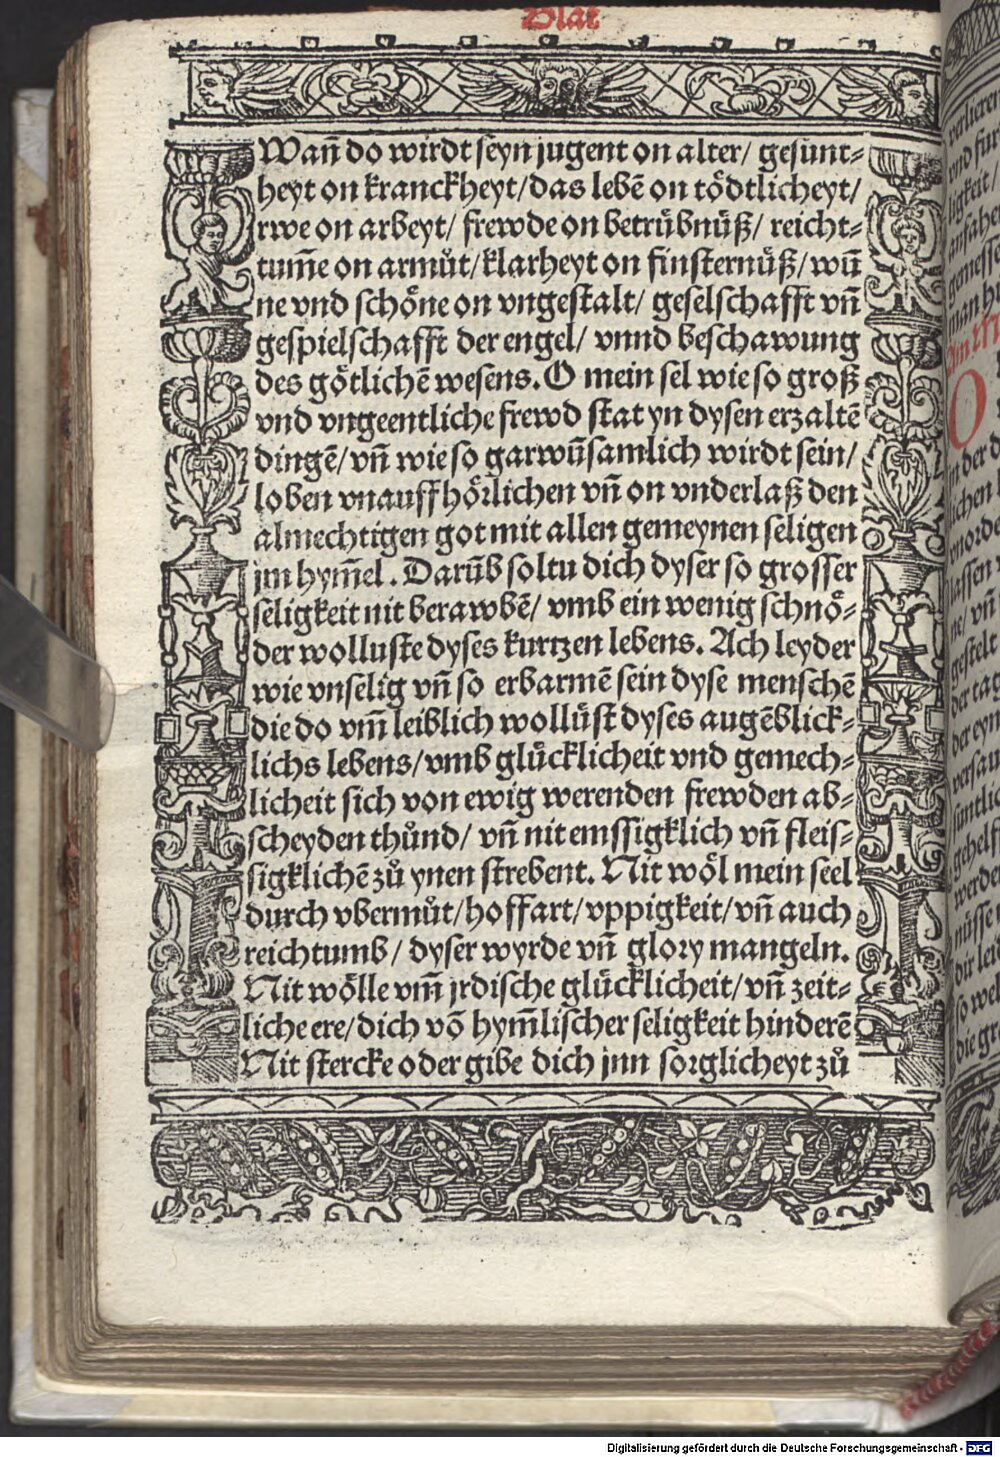 Blat
Wañ do wirdt seyn jugent on alter/ gesunt⸗
heyt on kranckheyt/das lebē on tödtlicheyt/
rwe on arbeyt/ frewde on betrübnüß/ reicht⸗
tum̄e on armůt/klarheyt on finsternüß/wū
ne vnd schöne on vngestalt/ geselschafft vñ
gespielschafft der engel/ vnnd beschawung
des götlichē wesens. O mein sel wie so groß
vnd vngeentliche frewd stat yn dysen erzaltē
dingē/vñ wie so gar wūsamlich wirdt sein/
loben vnauffhörlichen vñ on vnderlaß den
almechtigen got mit allen gemeynen seligen
jm hym̄el. Darūb soltu dich dyser so grosser
seligkeit nit berawbē/ vmb ein wenig schnö⸗
der wolluste dyses kurtzen lebens. Ach leyder
wie vnselig vñ so erbarmē sein dyse menschē
die do vm̄ leiblich wollüst dyses augēblick⸗
lichs lebens/vmb glücklicheit vnd gemech⸗
licheit sich von ewig werenden frewden ab⸗
scheyden thůnd/ vñ nit emssigklich vñ fleis⸗
sigklichē zů ynen strebent. Nit wöl mein seel
durch vbermůt/hoffart/vppigkeit/vñ auch
reichtumb/ dyser wyrde vñ glory mangeln.
Nit wölle vm̄ jrdische glücklicheit/vñ zeit⸗
liche ere/dich vō hym̄lischer seligkeit hinderē
Nit stercke oder gibe dich jnn sorglicheyt zů
verlieren
vnd für
ligkeit/
anfahe
gemesse
man hy
O
in der d
lichen
lassen
ne/ vñ
gestelt
der tag
der eyn
versau
gehelf
werde
müsse
dir leid
so wel
die gr
Digitalisierung gefördert durch die Deutsche Forschungsgemeinschaft - DFG